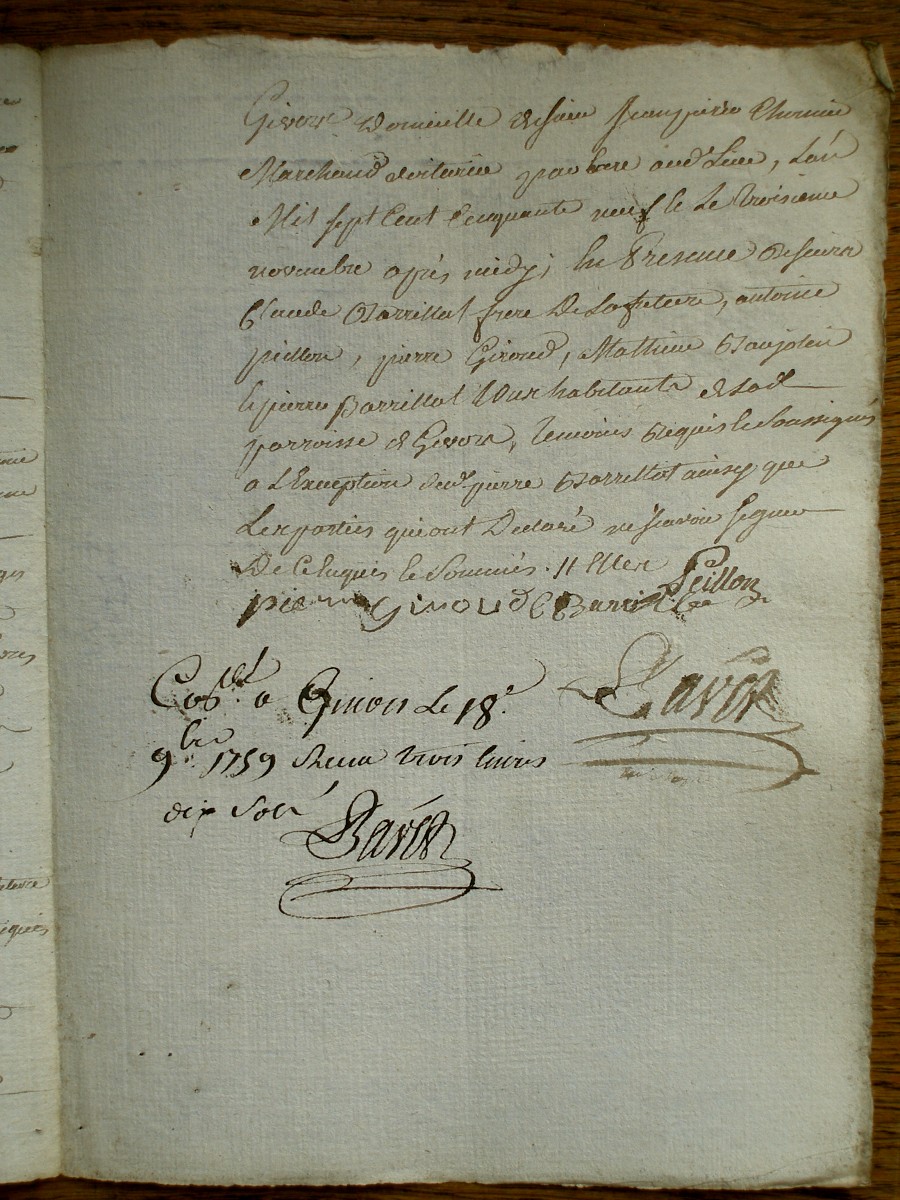 Givors Domicille de sieur Jean pierre Thomas
Marchand voiturier par terre aud. Lieu, L'an
Mil sept Cent Cinquante neuf & Le troisieme
novembre après midy; En Presence de sieurs
Claude Barrillot frere De La future, antoine
peillon, pierre Giroud, Mathieu Baujolin
& pierre Barrillot tous habitants de lad.
parroisse de Givors, temoins Requis & Soussignés
a L'Exception dud. pierre Barrillot ainsy que
Les parties qui ont Declaré ne sçavoir signer
De Ce Enquis & Sommés
pierre Giroud C Barrillot Peillon
Ravot
Con.lé a Givors Le 18.e
9bre 1759 Receu trois livres
dix Sols
Ravot